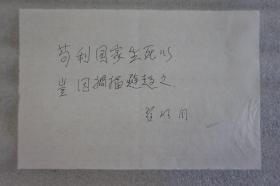 苟利国家生死以
豈因祸福避趋之